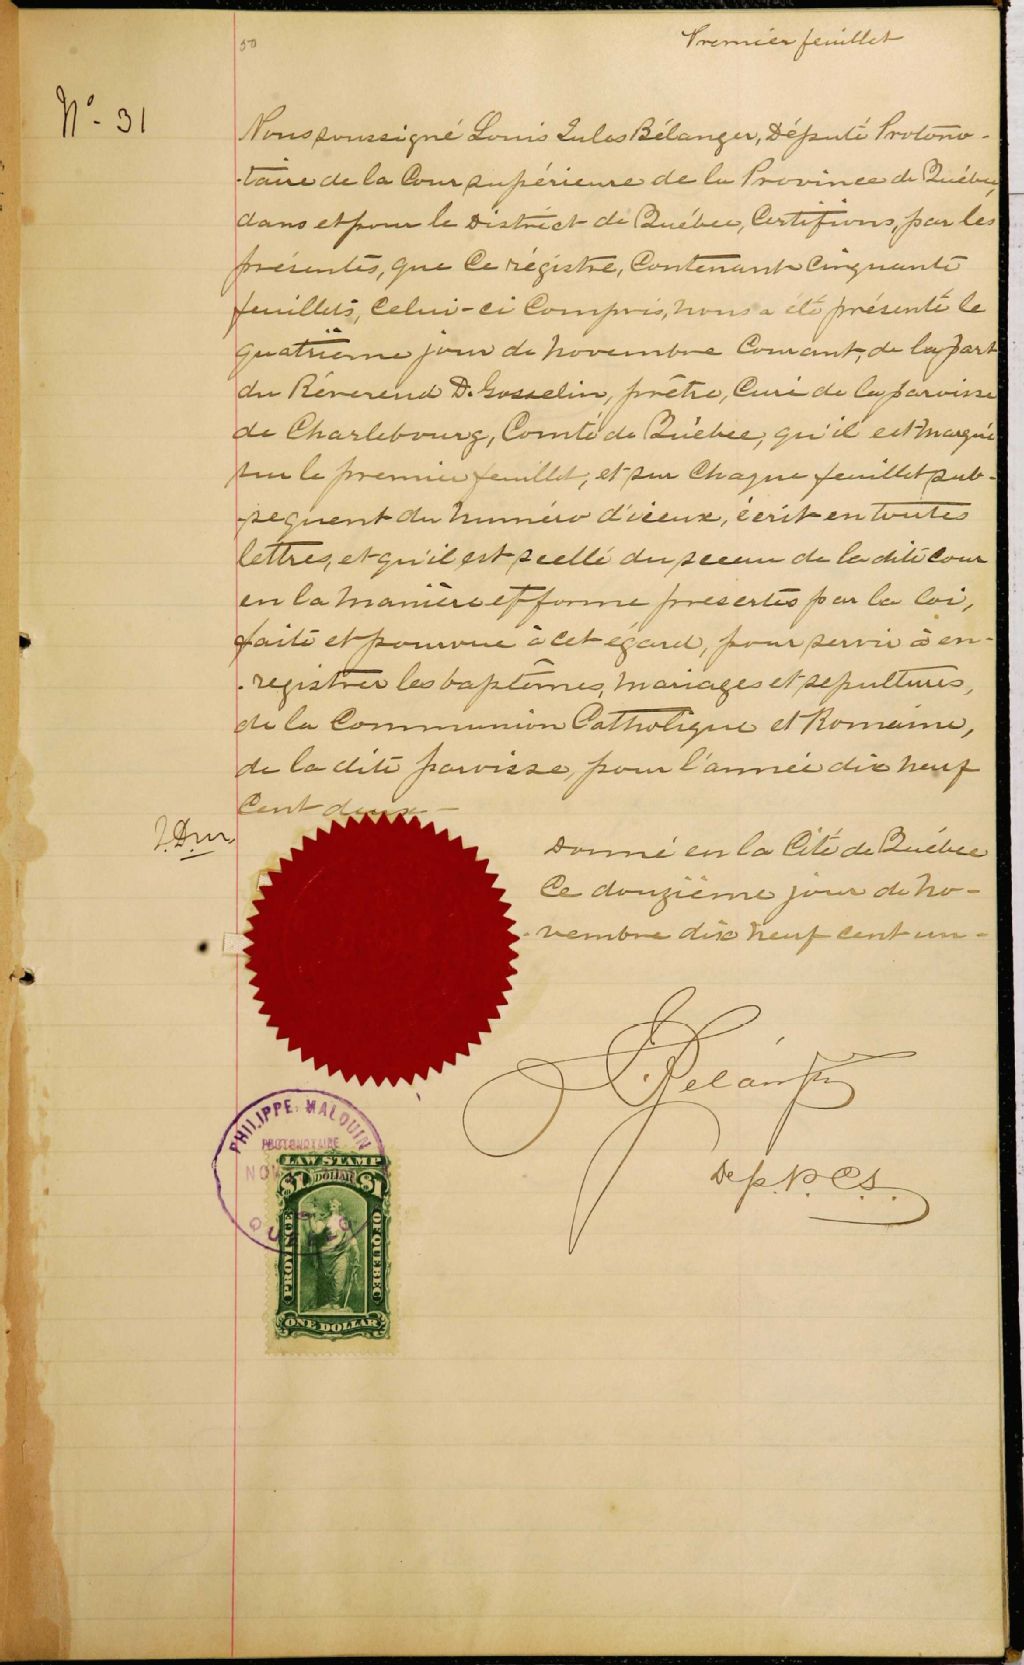 50
Premier feuillet
No - 31
Nous soussigné Louis Jules Bélanger, Député Protono-
-taire de la Cour supérieure de la Province de Québec,
dans et pour le District de Québec, Certifions, par les
présentes, que Ce régistre, Contenant Cinquante
feuillets, Celui-ci Compris, nous a été présenté le
quatrième jour de Novembre Courant, de la part
du Révérend D. Gosselin, prêtre, Curé de la paroisse
de Charlebourg, Comté de Québec, qu'il est marqué
sur le premier feuillet, et sur Chaque feuillet sub-
-sequent du numéro d'iceux, écrit en toutes
lettres, et qu'il est scellé du sceau de la dite Cour
en la manière et forme prescrites par la loi,
faite et pourvue à cet égard, pour servir à en-
-registrer les baptêmes, mariages et sepultures,
de la Communion Catholique et Romaine,
de la dite paroisse, pour l'année dix neuf
Cent deux -
Donné en la Cité de Québec
Ce douzième jour de No-
-vembre dix neuf cent un -
L. J. Bélanger
Dep. P. C. S.
PHILIPPE MALOUIN
PROTONOTAIRE
NOV
QUEBEC
LAW STAMP
$1 DOLLAR $1
PROVINCE
OF QUEBEC
ONE DOLLAR